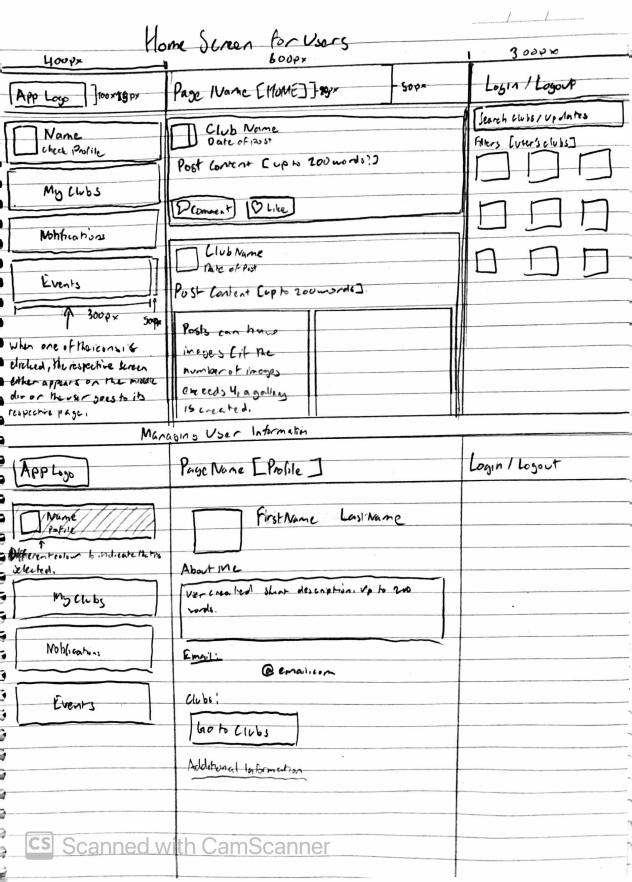 Home Screen for Users
400px
600px
300px
App Logo
Page Name [HOME]
50px
Login / Logout
Name
Check Profile
My Clubs
Notifications
Events
300px
50px
When one of the icons is
clicked, the respective screen
either appears on the middle
div or the user goes to its
respective page.
Club Name
Date of Post
Post Content [up to 200 words?]
Comment
Like
Club Name
Date of Post
Post Content [up to 200 words]
Posts can have
images [if the
number of images
exceeds 4, a gallery
is created.
Search Clubs/Updates
Filters [user's clubs]
Managing User Information
App Logo
Page Name [Profile]
Login / Logout
Name
Profile
Different colour to indicate that its
selected.
My Clubs
Notifications
Events
First Name Last Name
About Me
User created short description. Up to 200
words.
Email:
@email.com
Clubs:
Go to Clubs
Additional Information
CS Scanned with CamScanner